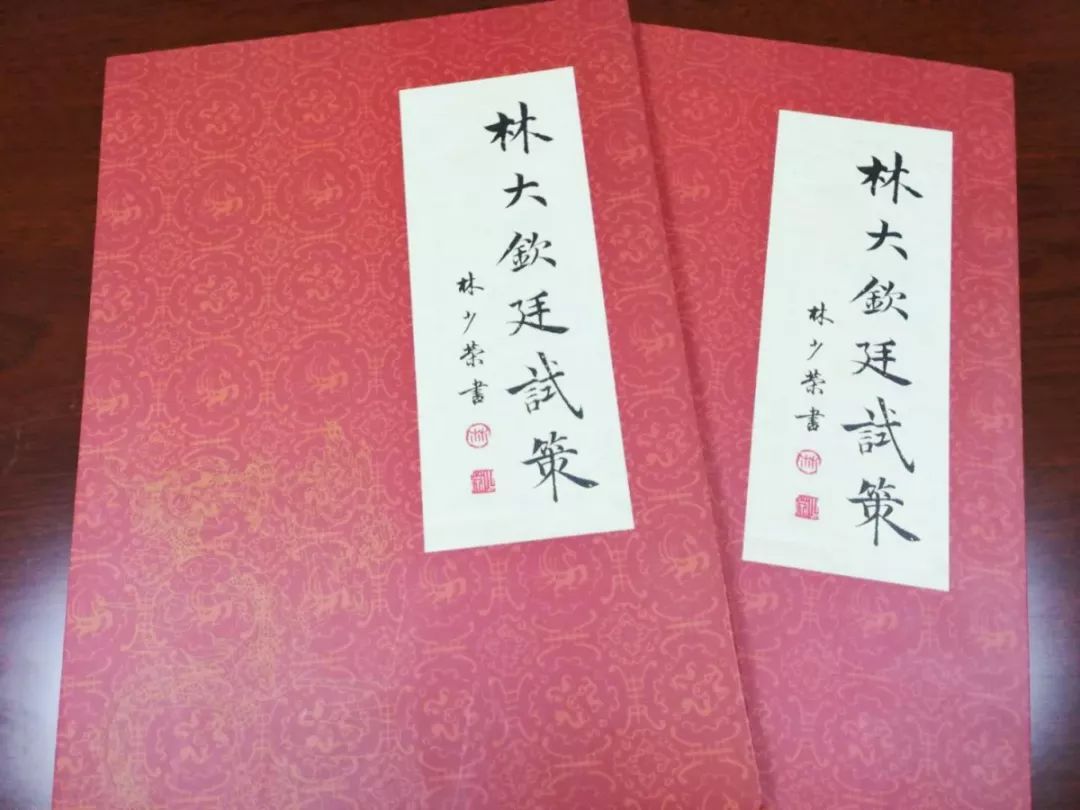 林大欽廷試策
林少荣書
林大欽廷試策
林少荣書